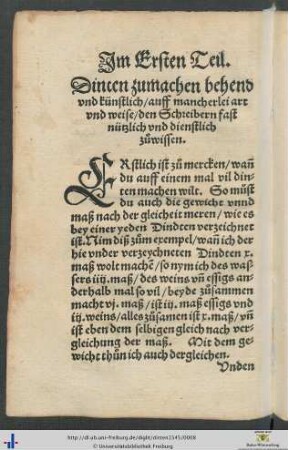 Im Ersten Teil.
Dinten zumachen behend
vnd künstlich/auff mancherlei art
vnd weise/den Schreibern fast
nützlich vnd dienstlich
zůwissen.
ERstlich ist zů mercken/wañ
du auff einem mal vil din-
ten machen wilt. So můst
du auch die gewicht vnnd
maß nach der gleicheit meren/wie es
bey einer yeden Dindten verzeichnet
ist. Nim diß zům exempel/wañ ich der
hie vnder verzeychneten Dindten x.
maß wolt machē/so nym ich des was-
sers iiij. maß/des weins vñ essigs an-
derhalb mal so vil/beyde zůsammen
macht vj. maß/ist iij. maß essigs vnd
iij. weins/alles zůsamen ist x. maß/vñ
ist eben dem selbigen gleich nach ver-
gleichung der maß. Mit dem ge-
wicht thůn ich auch dergleichen.
Vnden
http://dl.ub.uni-freiburg.de/diglit/dinten1545/0008
© Universitätsbibliothek Freiburg
Baden-Württemberg